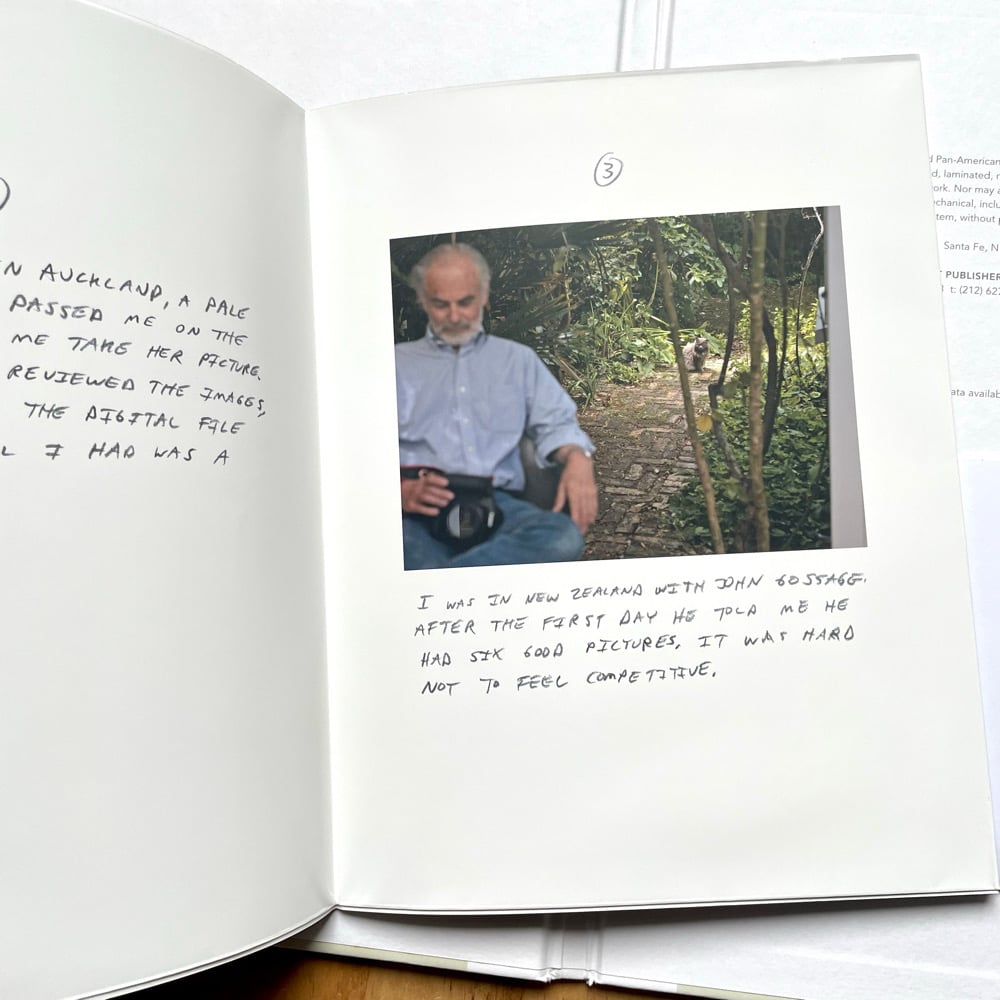 EN AUCKLAND, A PALE
PASSED ME ON THE
ME TAKE HER PICTURE.
REVIEWED THE IMAGES,
THE DIGITAL FILE
I HAD WAS A
3
I WAS IN NEW ZEALAND WITH JOHN GOSSAGE.
AFTER THE FIRST DAY HE TOLD ME HE
HAD SIX GOOD PICTURES. IT WAS HARD
NOT TO FEEL COMPETITIVE.
d Pan-American
d, laminated, r
ork. Nor may a
echanical, inclu
tem, without p
Santa Fe, N
T PUBLISHER
t: (212) 627
ata availab